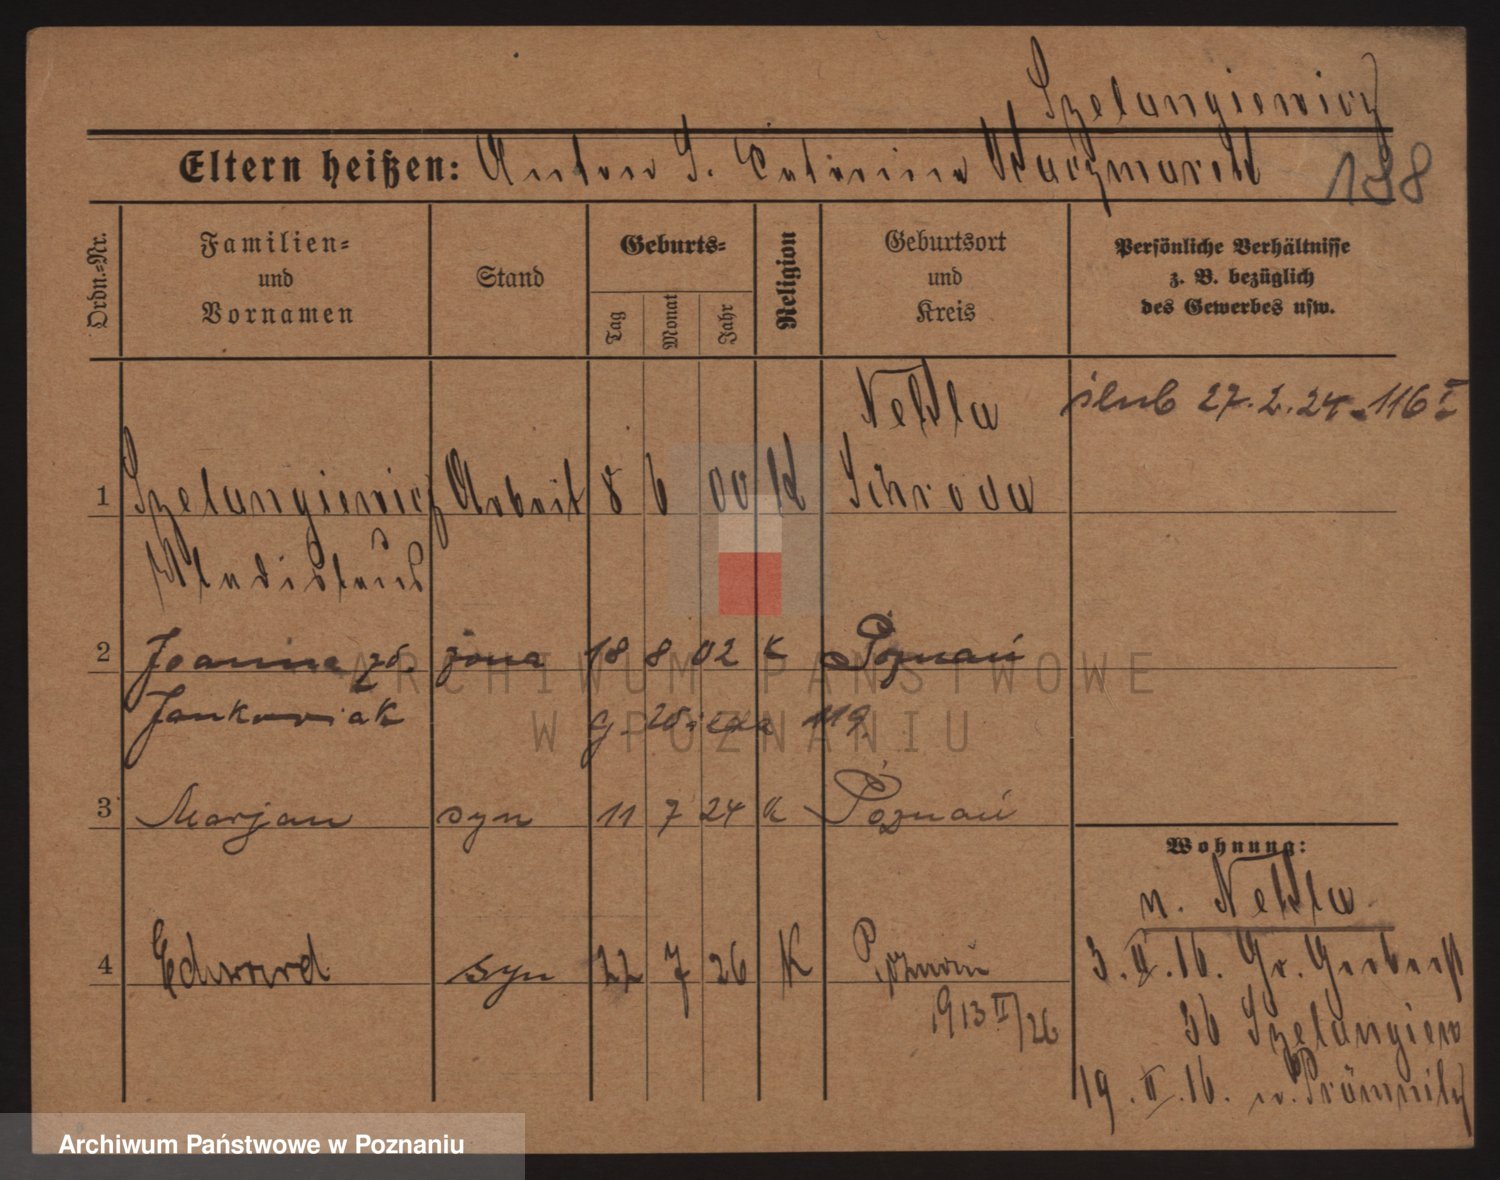 Szelangiewicz
Eltern heißen: Anton S. Catarina Kaczmarek 198
Ordn.-Nr.
Familien- und Vornamen
Stand
Geburts-
Tag Monat Jahr
Religion
Geburtsort und Kreis
Persönliche Verhältnisse
z. B. bezüglich
des Gewerbes usw.
Nekla
ślub 27.2.24 - 116 I
1 Szelangiewicz Arbeit 8 6 00 K Schroda
Wladislaus
2 Joanna zd. żona 18 8 02 K Poznań
Jankowiak
3 Marjan syn 11 7 24 K Poznań
Wohnung:
n. Nekla
4 Edward syn 22 7 26 K Poznań
1913 II/26
3. II. 16. Gr. Gerberst
36 Szelangiew
19. II. 16. n.
ARCHIWUM PAŃSTWOWE
W POZNANIU
Archiwum Państwowe w Poznaniu